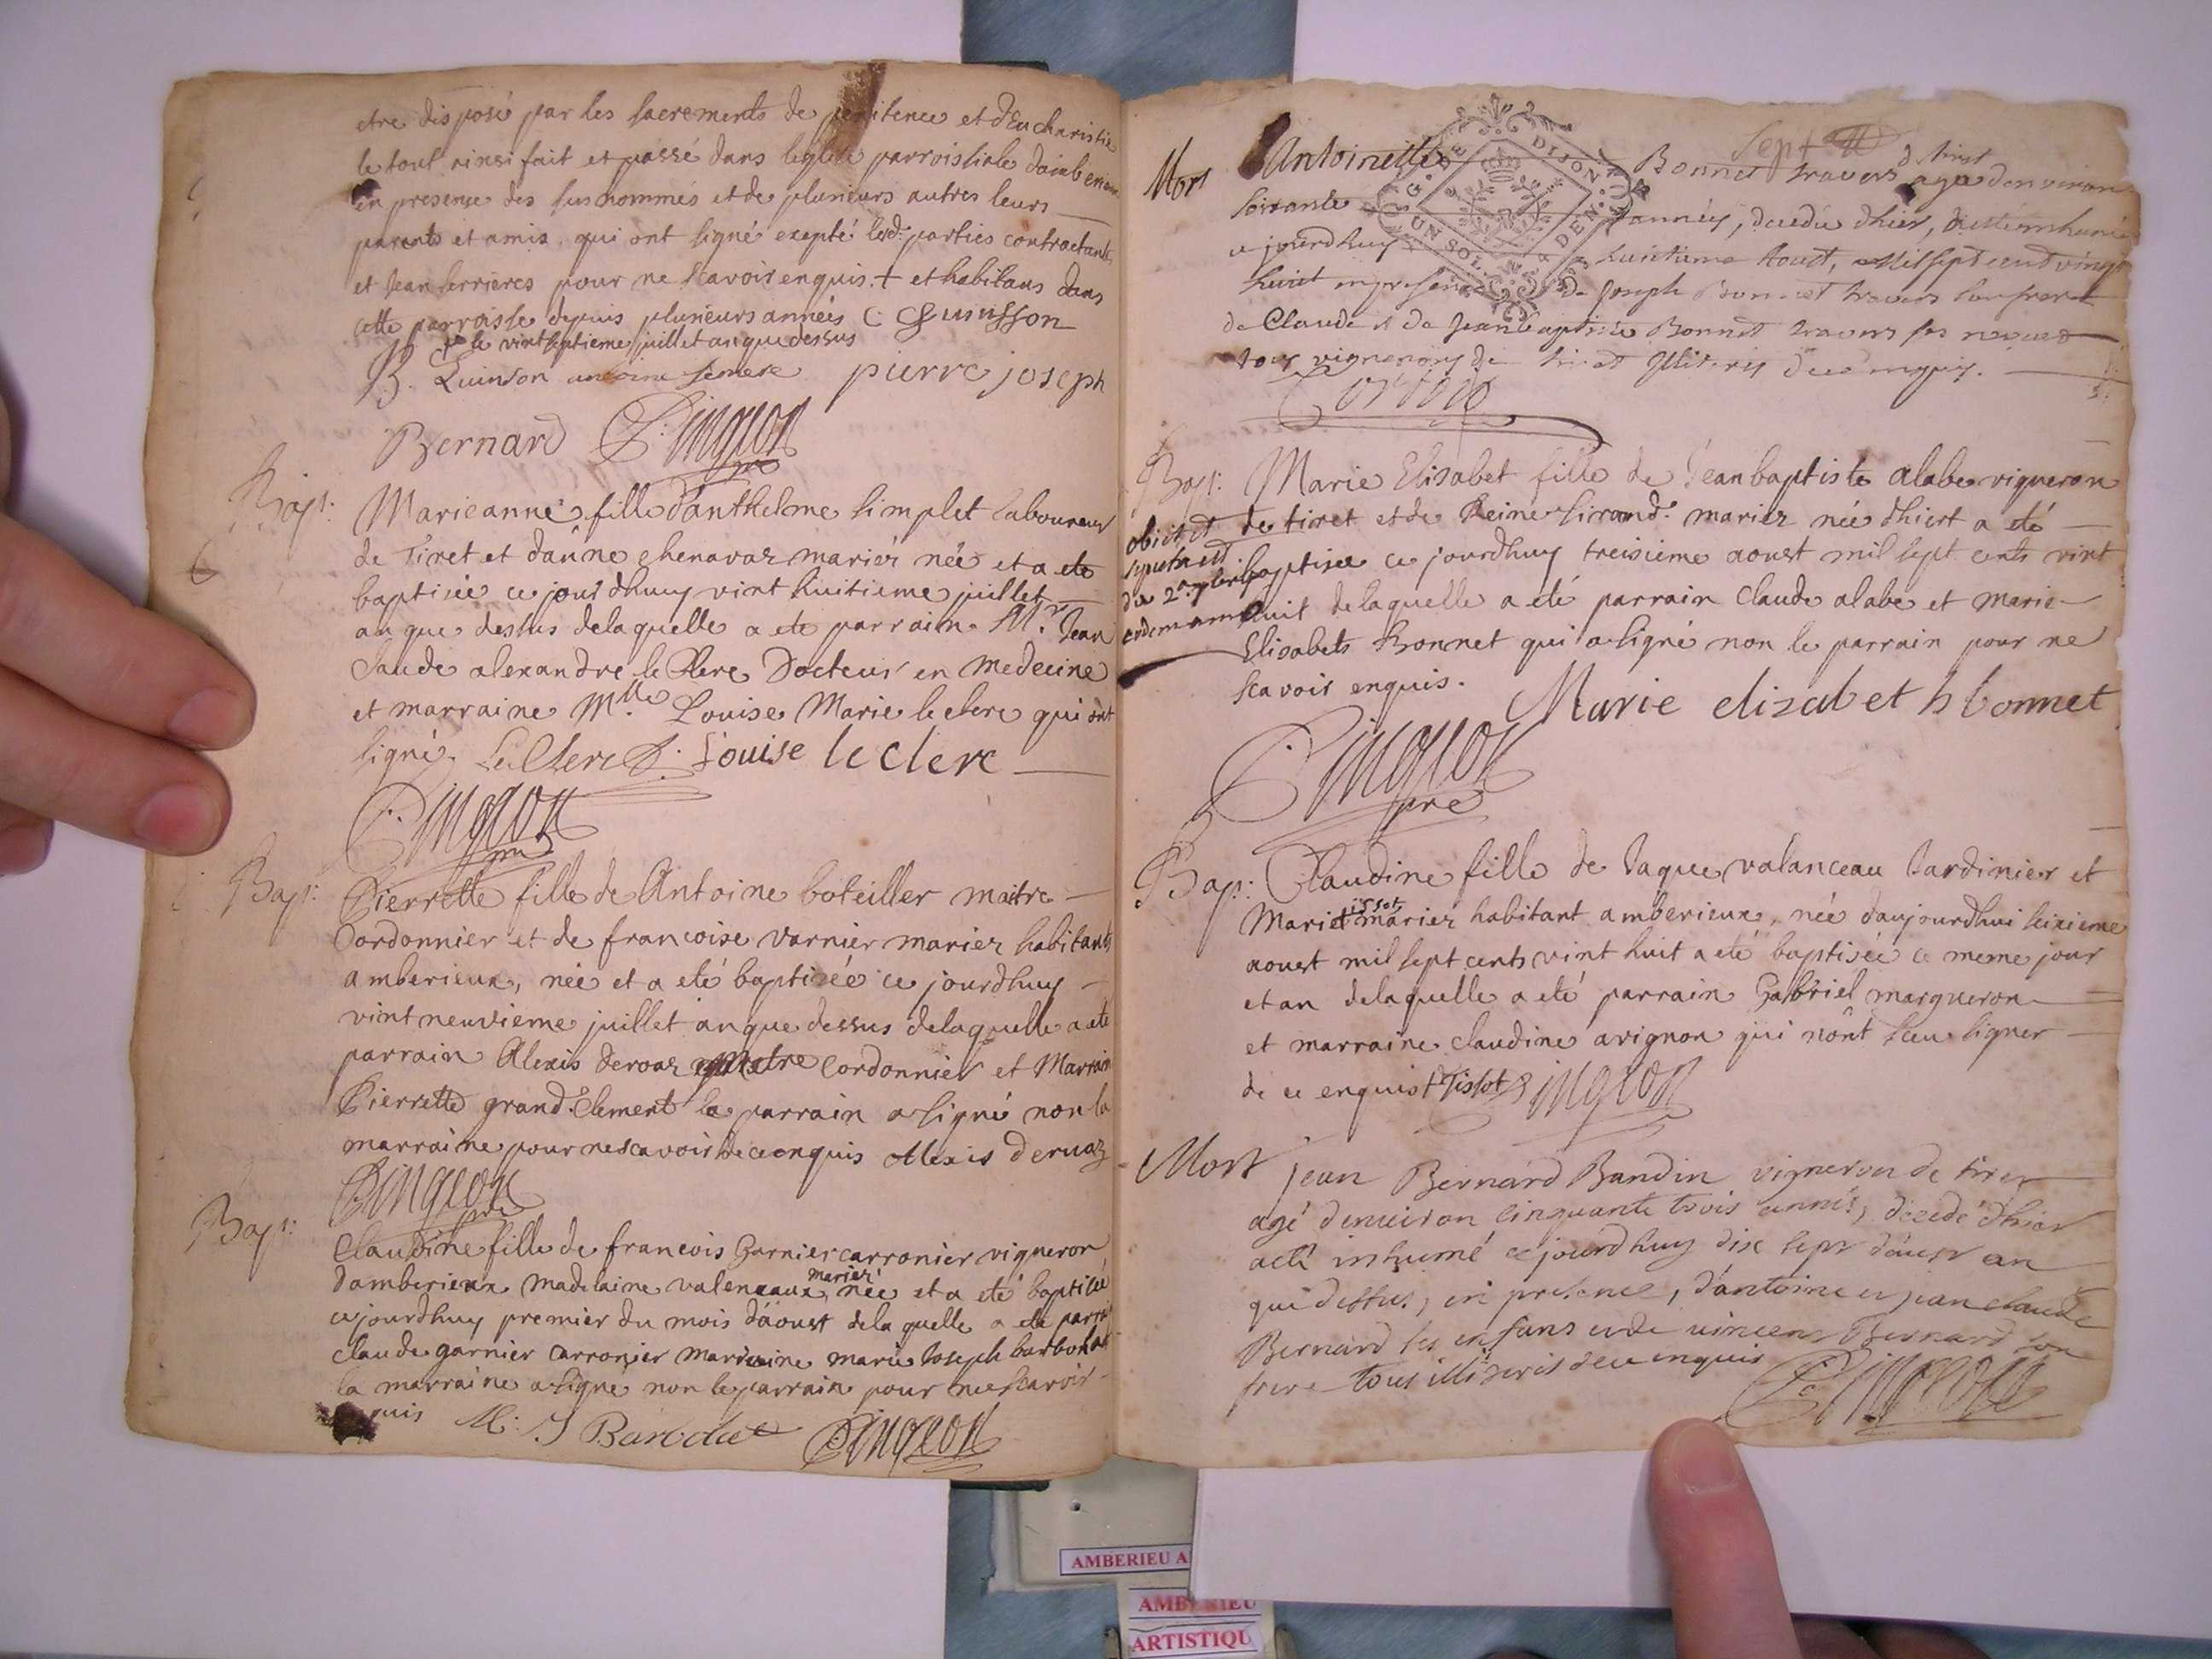 etre disposé par les sacrements de penitence et d'Eucharistie
le tout ainsi fait et passé dans leglise parroissiale dainberieux
en presence des susnommés et de plusieurs autres leurs
parents et amis, qui ont signé excepté lesd: parties contractants
et Jean serrieres pour ne scavoir enquis. + et habitans dans
cette parroisse depuis plusieurs années C Guinsson
+ le vintseptieme juillet an que dessus
B. Quinson antoine semere pierre joseph
Bernard Pingeon
pre
Bapt: Marieanne fille d'anthelme simplet laboureur
de Tiret et daune chenavaz mariez née et a eté
baptisée ce jourdhuy vint huitieme juillet
an que dessus delaquelle a eté parrain Mr. Jean
Claude alexandre le Clerc Docteur en medecine
et marraine Mlle Louise Marie le clerc qui ont
signé. LeClerc Louise le clerc
Pingeon
pre
Bapt: Pierrette fille de Antoine boteiller maitre
Cordonnier et de francoise varnier mariez habitants
amberieux, née et a eté baptizée ce jourdhuy
vint neuvieme juillet an que dessus delaquelle a eté
parrain Alexis dervaz maitre Cordonnier et Marraine
Pierrette grand: Clement le parrain a signé non la
marraine pour ne scavoir de ce enquis Alexis dervaz
Pingeon
pre
Bapt: Claudine fille de francois Garnier carronier vigneron
damberieux madelaine valenceaux mariez née et a eté baptisée
cejourdhuy premier du mois d'aoust dela quelle a eté parrain
claude garnier carronier marraine marie Joseph
la marraine a signé non le parrain pour ne scavoir
enquis M: J Pingeon
Sept
Mort Antoinette Bonnet travers de tiret agée denviron
soixante années, decedée dhier, a été inhumée
cejourdhuy huitieme Aoust, mil sept cend vingt
huict en presence de Joseph Bonnet travers son frere
de Claude et de Jeanbaptiste Bonnet travers ses neveux
tous vignerons de tiret illiterés de ce enquis.
G. DE DIJON
UN SOL. DEN.
Bapt: Marie Elisabet fille de Jeanbaptiste alabe vigneron
de tiret et de Reine sirand: mariez née dhiert a eté
baptisée ce jourdhuy treisieme aoust mil sept cents vint
huit delaquelle a eté parrain Claude alabe et marie
Elisabets Bonnet qui a signé non le parrain pour ne
scavoir enquis. Marie elizabet h bonnet
obiit et
sepulta est
die 2a
eodem anno
Pingeon
pre
Bap: Claudine fille de Jaque valanceau Jardinier et
Marie tissot mariez habitant amberieux, née daujourdhui seixieme
aoust mil sept cents vint huit a eté baptisée ce meme jour
et an delaquelle a eté parrain Gabriel margueron
et marraine claudine avignon qui nônt sceu signer
de ce enquis + Tissot Pingeon
Mort jean Bernard Bandin vigneron de tiret
agé denviron cinquante trois années, decedé dhier
a eté inhumé ce jourdhuy dix sept d'aust an
que dessus, en presence, d'antoine et jean claude
Bernard ses enfans et de vincent Bernard son
frere tous illiterés de ce enquis Pingeon
AMBERIEU A
AMBERIEU
ARTISTIQU